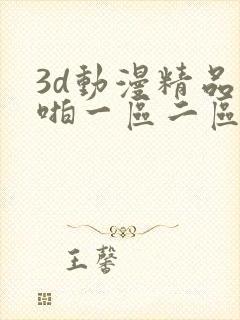 3d動漫精品
啪一區二區
王馨